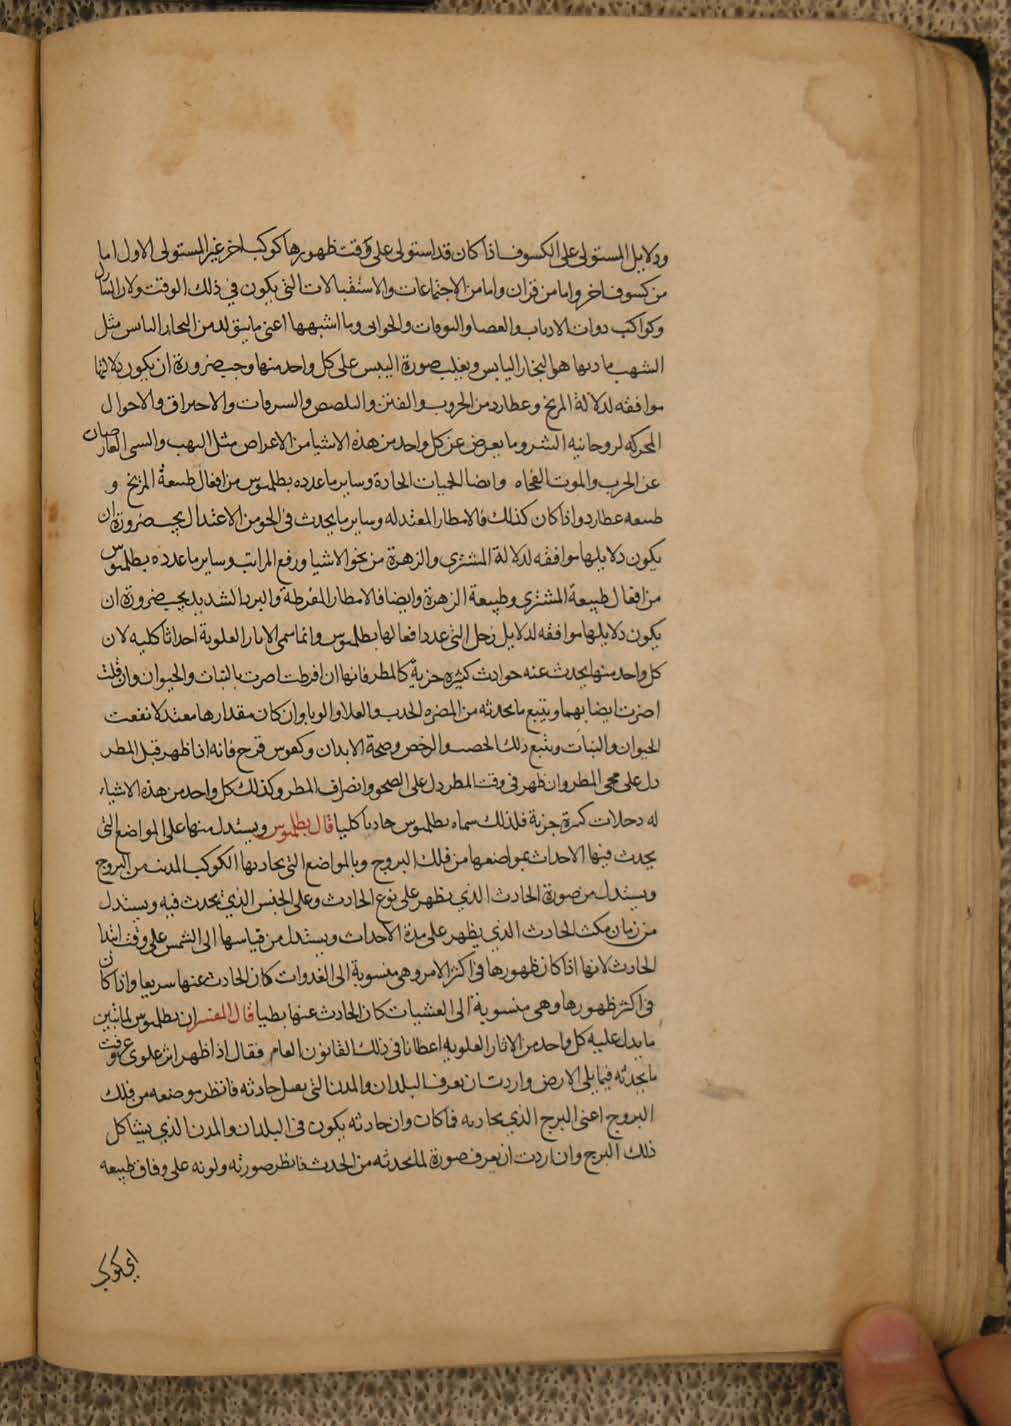 ودلايل المستولى على الكسوف اذا كان قد استولى على وقت ظهورها كوكب اخر غير المستولى الاول اما
من كسوف اخر واما من قران واما من الاجتماعات والاستقبالات التى يكون في ذلك الوقت ولان
وكواكب ذوات الاذناب والعصا والبوقات والخوابى وما اشبهها اعنى ما يتولد من البخار اليابس مثل
الشهب مادتها هو البخار اليابس ويغلب صورة اليبس على كل واحد منها وجب ضرورة ان يكون دلالتها
موافقه لدلالة المريخ وعطارد من الحروب والفتن والتلصص والسرقات والاحتراق والاحوال
المحركه لروحانيه الشر وما يعرض عن كل واحد من هذه الاشيا من الاعراض مثل النهب والسبى العارضان
عن الحرب والموت الفجاه وايضا الحميات الحادة وساير ما عدده بطلميوس من افعال طبيعة المريخ و
طبيعه عطارد واذا كان كذلك فالامطار المعتدله وساير ما يحدث في الجو من الاعتدال يجب ضرورة ان
يكون دلايلها موافقه لدلالة المشترى والزهرة من نحو الاشيا ورفع المراتب وساير ما عدده بطلميوس
من افعال طبيعة المشترى وطبيعة الزهرة وايضا فالامطار المفرطة والبرد الشديد يجب ضرورة ان
يكون دلايلها موافقه لدلايل زحل التى عدد افعالها بطلميوس وانما سمى الاثار العلوية احداثا كليه لان
كل واحد منها يحدث عنه حوادث كثيره جزية كالمطر فانها ان افرطت اضرت بالنبات والحيوان وان قلت
اضرت ايضا بهما ويتبع ما يحدثه من المضره الجدب والغلا والوبا وان كان مقدارها معتدلا نفعت
الحيوان والنبات ويتبع ذلك الخصب والرخص وصحة الابدان وكقوس قزح فانه اذا ظهر قبل المطر
دل على مجى المطر وان ظهر في وقت المطر دل على الصحو وانصراف المطر وكذلك كل واحد من هذه الاشياء
له دلالات كثيرة جزية فلذلك سماه بطلميوس حادثا كليا قال بطلميوس ويستدل منها على المواضع التى
يحدث فيها الاحداث بمواضعها من فلك البروج وبالمواضع التى يحاذيها الكوكب المذنب من البروج
ويستدل من صورة الحادث الذي يظهر على نوع الحادث وعلى الجنس الذي يحدث فيه ويستدل
من زمان مكث الحادث الذي يظهر على مدة الاحداث ويستدل من قياسها الى الشمس على وقت ابتدا
الحادث لانها اذا كان ظهورها في اكثر الامر وهى منسوبة الى الغدوات كان الحادث عنها سريعا واذا كان
في اكثر ظهورها وهى منسوبة الى العشيات كان الحادث عنها بطيا قال المفسر ان بطلميوس لما تبين
ما يدل عليه كل واحد من الاثار العلويه اعطانا في ذلك القانون العام فقال اذا ظهر اثر علوى وعرفت
ما يحدثه فيما يلى الارض واردت ان تعرف البلدان والمدن التى يصل حادثه فانظر موضعه من فلك
البروج اعنى البرج الذي يحاذيه فاكان وان حادثه يكون في البلدان والمدن الذي يشاكل
ذلك البرج وان اردت ان تعرف صورة لما يحدثه من الحدث فانظر صورته ولونه على وفاق طبيعه
اي كوكب